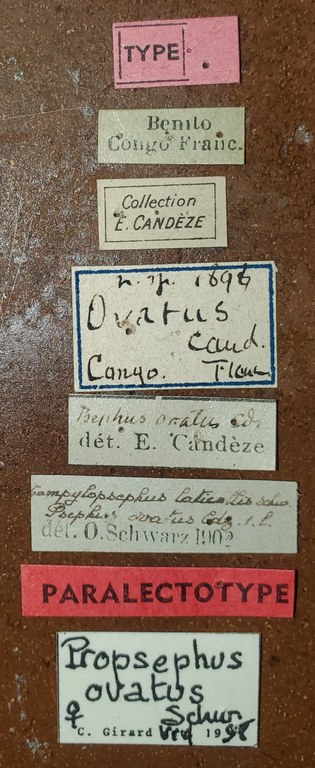 TYPE
Benito
Congo Franc.
Collection
E. CANDÈZE
Ovatus
Cand.
Congo.
ovatus Cdz
dét. E. Candèze
Campylopsephus laticollis Schw.
Psephus ovatus Cdz. i. l.
dét. O. Schwarz 1902
PARALECTOTYPE
Propsephus
ovatus
♀ Schw.
C. Girard 19